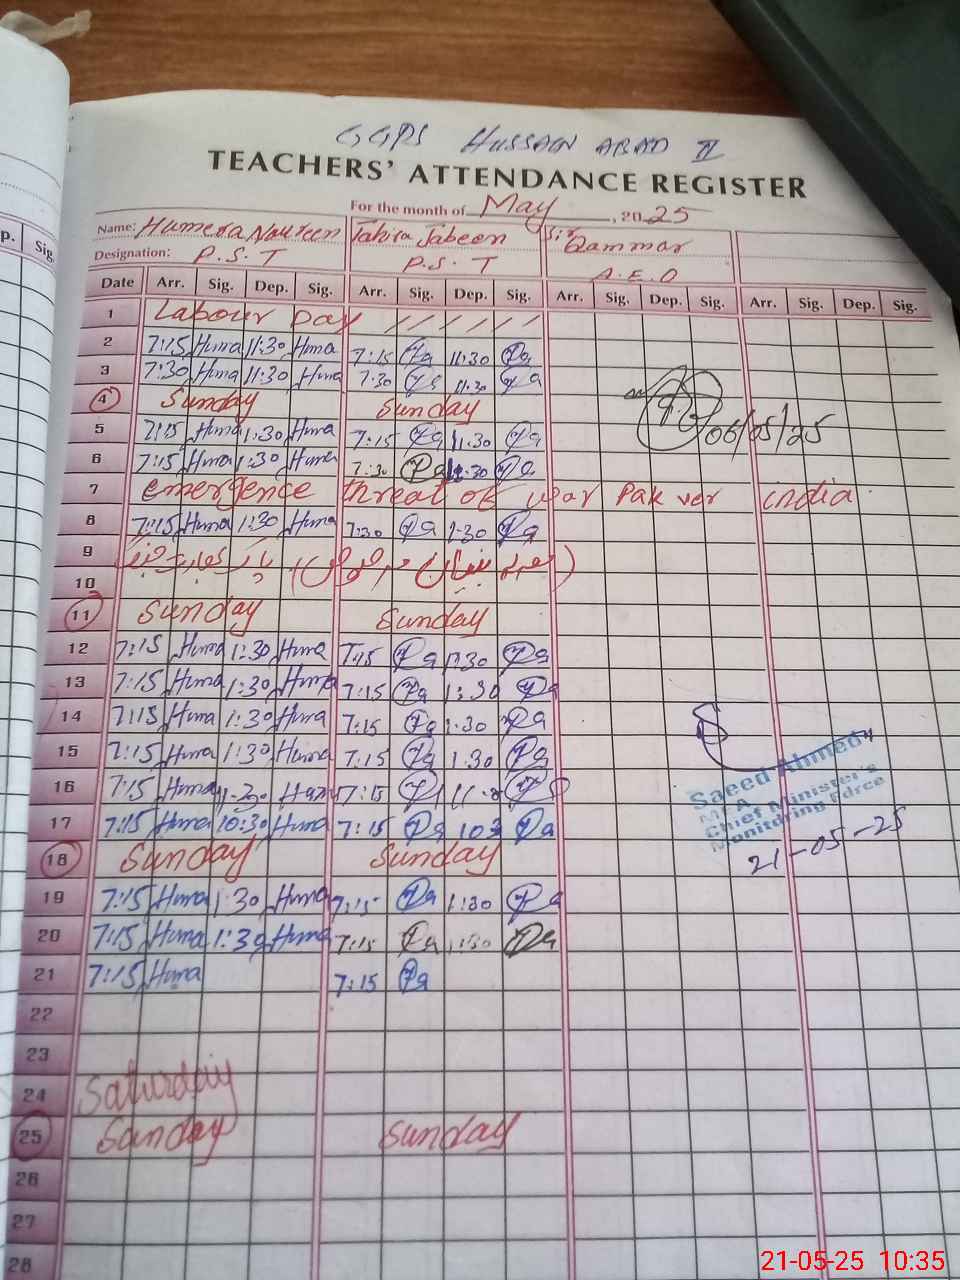 GGPS HUSSAIN ABAD II
TEACHERS' ATTENDANCE REGISTER
For the month of May, 2025
Name: Humera Noureen Tahira Jabeen Sir Qammar
Designation: P.S.T P.S.T A.E.O
p. Sig.
Date Arr. Sig. Dep. Sig. Arr. Sig. Dep. Sig. Arr. Sig. Dep. Sig. Arr. Sig. Dep. Sig.
1 Labour Day / / / / / /
2 7:15 Huma 11:30 Huma 7:15 11:30
3 7:30 Huma 11:30 Huma 7:30 11:30
4 Sunday Sunday
5 7:15 Huma 1:30 Huma 7:15 11:30 06/05/25
6 7:15 Huma 1:30 Huma 7:30
7 emergence threat of war Pak ver india
8 7:15 Huma 1:30 Huma 7:30 1:30
9
10
11 Sunday Sunday
12 7:15 Huma 1:30 Huma 7:15 1:30
13 7:15 Huma 1:30 Huma 7:15 1:30
14 7:15 Huma 1:30 Huma 7:15 1:30
15 7:15 Huma 1:30 Huma 7:15 1:30
16 7:15 Huma 11:30 Huma 7:15
17 7:15 Huma 10:30 Huma 7:15 103
Saeed Ahmed
M E A
Chief Minister's
Monitoring Force
21-05-25
18 Sunday Sunday
19 7:15 Huma 1:30 Huma 7:15 1:30
20 7:15 Huma 1:30 Huma 7:15 1:30
21 7:15 Huma 7:15
22
23
24 Saturday
25 Sunday Sunday
26
27
28
21-05-25 10:35